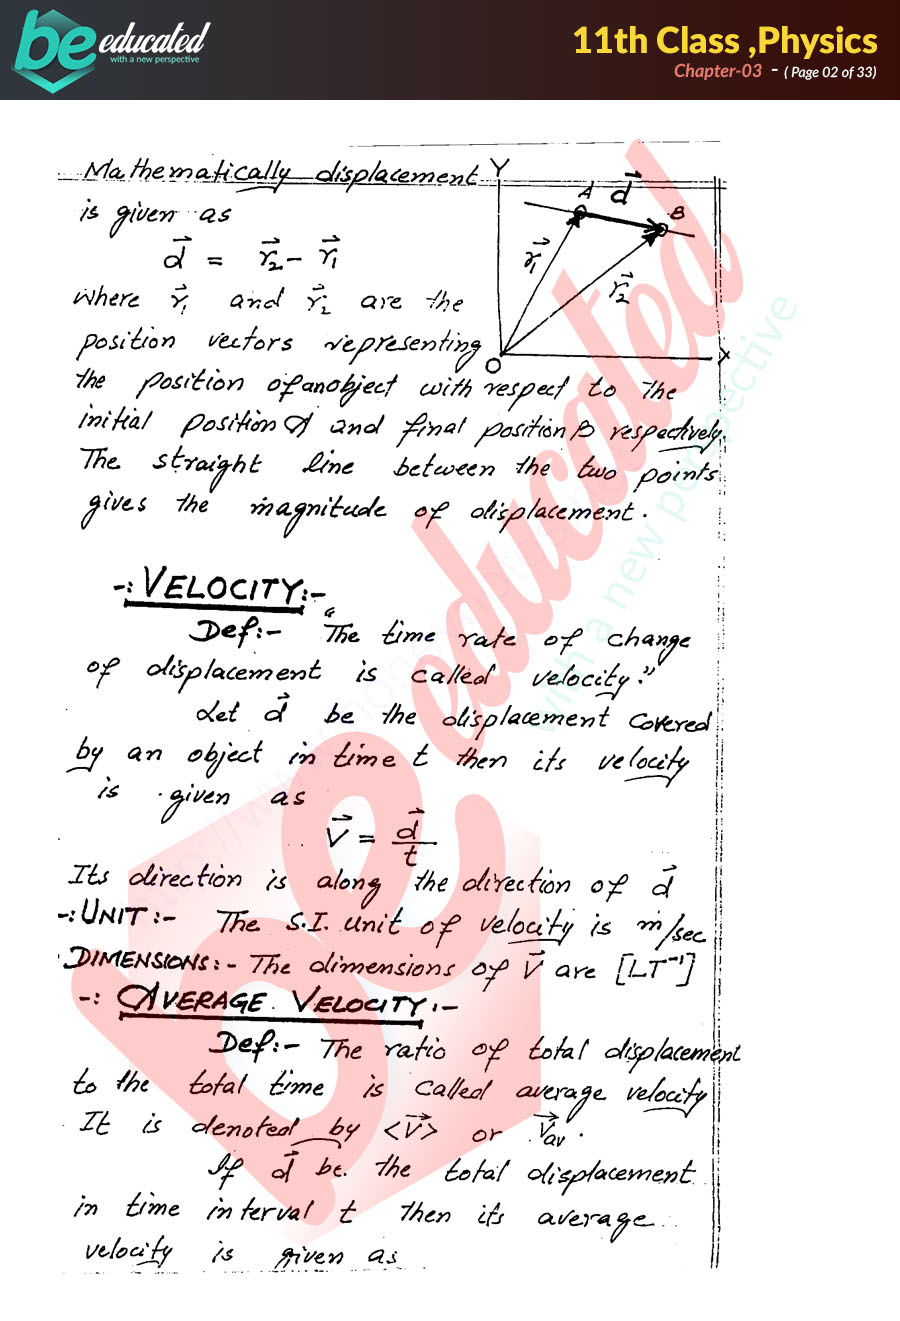 be educated
with a new perspective
11th Class ,Physics
Chapter-03 - ( Page 02 of 33)
Mathematically displacement
is given as
d⃗ = r⃗₂ - r⃗₁
where r⃗₁ and r⃗₂ are the
position vectors representing
the position of an object with respect to the
initial position A and final position B respectively.
The straight line between the two points
gives the magnitude of displacement.
Y
A
d⃗
B
r⃗₁
r⃗₂
O
X
-: VELOCITY:-
Def:- "The time rate of change
of displacement is called velocity."
Let d⃗ be the displacement covered
by an object in time t then its velocity
is given as
V⃗ = d⃗/t
Its direction is along the direction of d⃗
-: UNIT:- The S.I. unit of velocity is m/sec
DIMENSIONS:- The dimensions of V⃗ are [LT⁻¹]
-: AVERAGE VELOCITY:-
Def:- The ratio of total displacement
to the total time is called average velocity
It is denoted by <V⃗> or V⃗av.
If d⃗ be the total displacement
in time interval t then its average
velocity is given as
be educated
with a new perspective